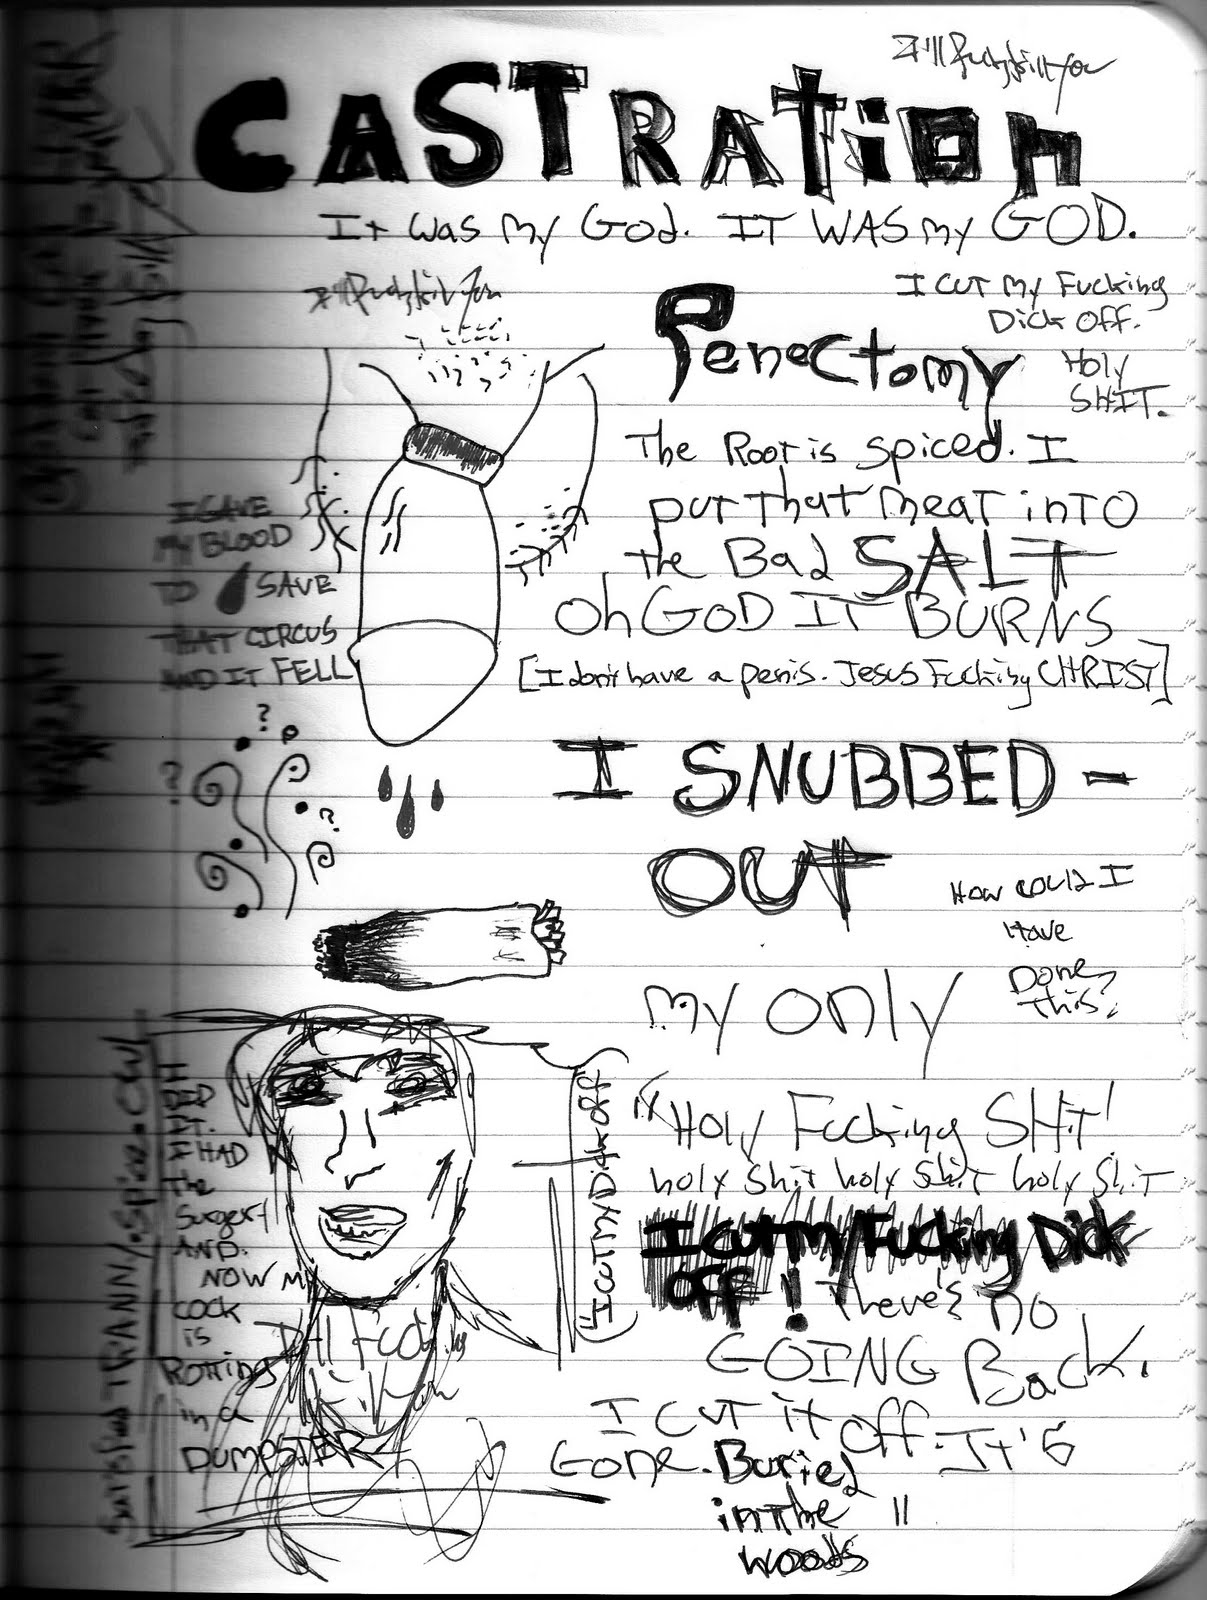 CASTRATION
It was my God. IT WAS my GOD.
I cut my Fucking
Dick off.
Holy
SHIT.
Penectomy
The Root is spiced. I
put that meat into
the Bad SALT
Oh GOD IT BURNS
[I don't have a penis. Jesus Fucking CHRIST]
I GAVE
MY BLOOD
TO SAVE
THAT CIRCUS
AND IT FELL
? ?
?
I SNUBBED -
OUT
How could I
Have
Done
this.
my only
"Holy Fucking SHIT!
holy shit holy shit holy shit
I cut my Fucking Dick
off! There's no
GOING Back.
I cut it off. It's
Gone. Buried
in the
woods
"
("I CUT MY Dick off)
I DID
IT.
I HAD
the
Surgery
AND
NOW MY
COCK
is
Rotting
in a
DUMPSTER